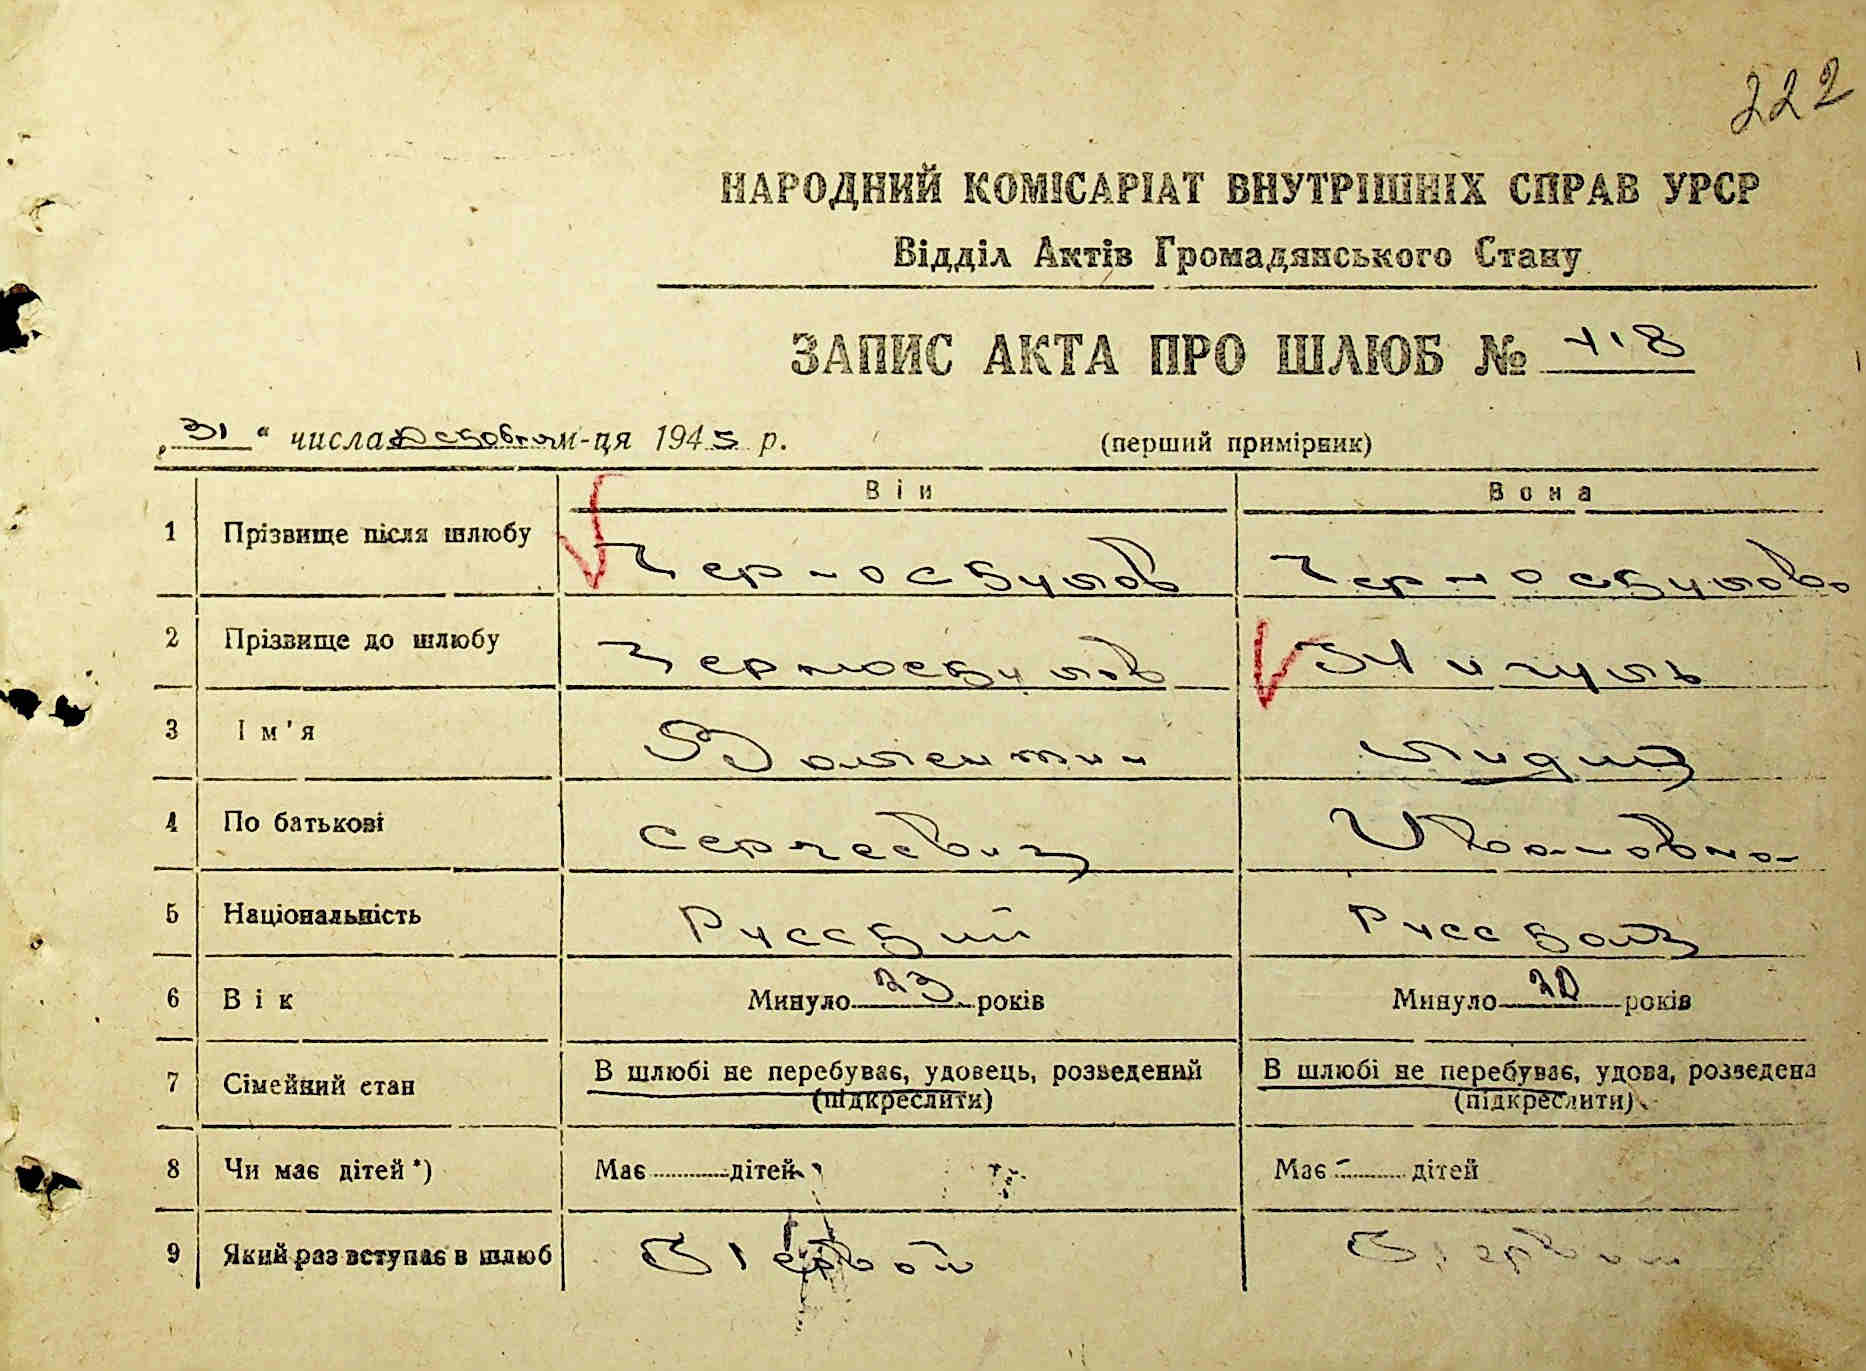 222
НАРОДНИЙ КОМІСАРІАТ ВНУТРІШНІХ СПРАВ УРСР
Відділ Актів Громадянського Стану
ЗАПИС АКТА ПРО ШЛЮБ № 418
„31“ числа Декабря м-ця 1945 р. (перший примірник)
Він Вона
1 Прізвище після шлюбу Черноскулов Черноскулова
2 Прізвище до шлюбу Черноскулов
3 Ім'я Валентин Лидия
4 По батькові Сергеевич Ивановна
5 Національність Русский Русская
6 Вік Минуло 23 років Минуло 20 років
7 Сімейний стан В шлюбі не перебуває, удовець, розведений В шлюбі не перебуває, удова, розведена
(підкреслити) (підкреслити)
8 Чи має дітей *) Має дітей Має - дітей
9 Який раз вступає в шлюб В первой В первой